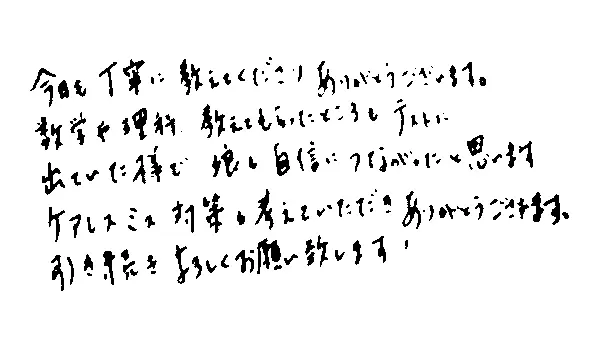 今日も丁寧に教えてくださりありがとうございます。
数学や理科、教えてもらったところもテストに
出ていた様で娘も自信につながったと思います
ケアレスミス対策も考えていただきありがとうございます。
引き続きよろしくお願い致します!